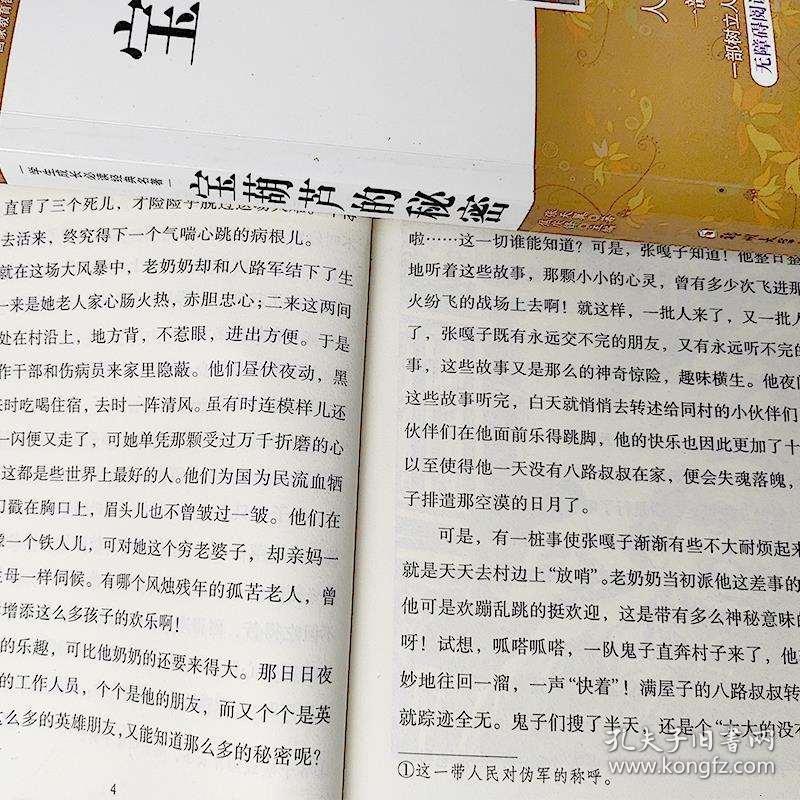 宝
人
一部树立人
无障碍阅读
学生成长必读经典名著
宝葫芦的秘密
直冒了三个死儿,才险险乎脱过这场大难。
去活来,终究得下一个气喘心跳的病根儿。
就在这场大风暴中,老奶奶却和八路军结下了生
一来是她老人家心肠火热,赤胆忠心;二来这两间
处在村沿上,地方背,不惹眼,进出方便。于是
作干部和伤病员来家里隐蔽。他们昼伏夜动,黑
来时吃喝住宿,去时一阵清风。虽有时连模样儿还
一闪便又走了,可她单凭那颗受过万千折磨的心
这都是些世界上最好的人。他们为国为民流血牺
刀戳在胸口上,眉头儿也不曾皱过一皱。他们在
像一个铁人儿,可对她这个穷老婆子,却亲妈一
生母一样伺候。有哪个风烛残年的孤苦老人,曾
增添这么多孩子的欢乐啊!
的乐趣,可比他奶奶的还要来得大。那日日夜
的工作人员,个个是他的朋友,而又个个是英
这么多的英雄朋友,又能知道那么多的秘密呢?
4
啦……这一切谁能知道?可是,张嘎子知道!他整日整
地听着这些故事,那颗小小的心灵,曾有多少次飞进那
火纷飞的战场上去啊!就这样,一批人来了,又一批人
了,张嘎子既有永远交不完的朋友,又有永远听不完的
事,这些故事又是那么的神奇惊险,趣味横生。他夜间
这些故事听完,白天就悄悄去转述给同村的小伙伴们
伙伴们在他面前乐得跳脚,他的快乐也因此更加了十
以至使得他一天没有八路叔叔在家,便会失魂落魄,
子排遣那空漠的日月了。
可是,有一桩事使张嘎子渐渐有些不大耐烦起来
就是天天去村边上“放哨”。老奶奶当初派他这差事的
他可是欢蹦乱跳的挺欢迎,这是带有多么神秘意味的
呀!试想,呱嗒呱嗒,一队鬼子直奔村子来了,他
妙地往回一溜,一声“快着”!满屋子的八路叔叔转
就踪迹全无。鬼子们搜了半天,还是个“大大的没
①这一带人民对伪军的称呼。
孔夫子旧书网
www.kongfz.com